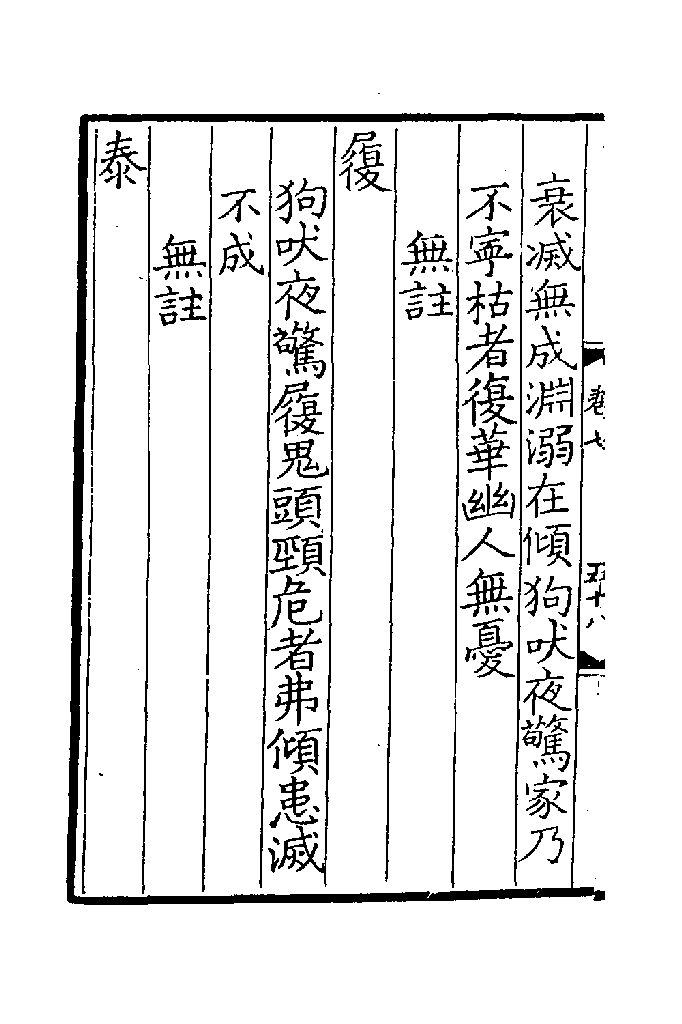 衰滅無成淵溺在傾狗吠夜驚家乃
不寜枯者復華幽人無憂
無註
履
狗吠夜驚履鬼頭頸危者弗傾患滅
不成
無註
泰
卷七
五十八